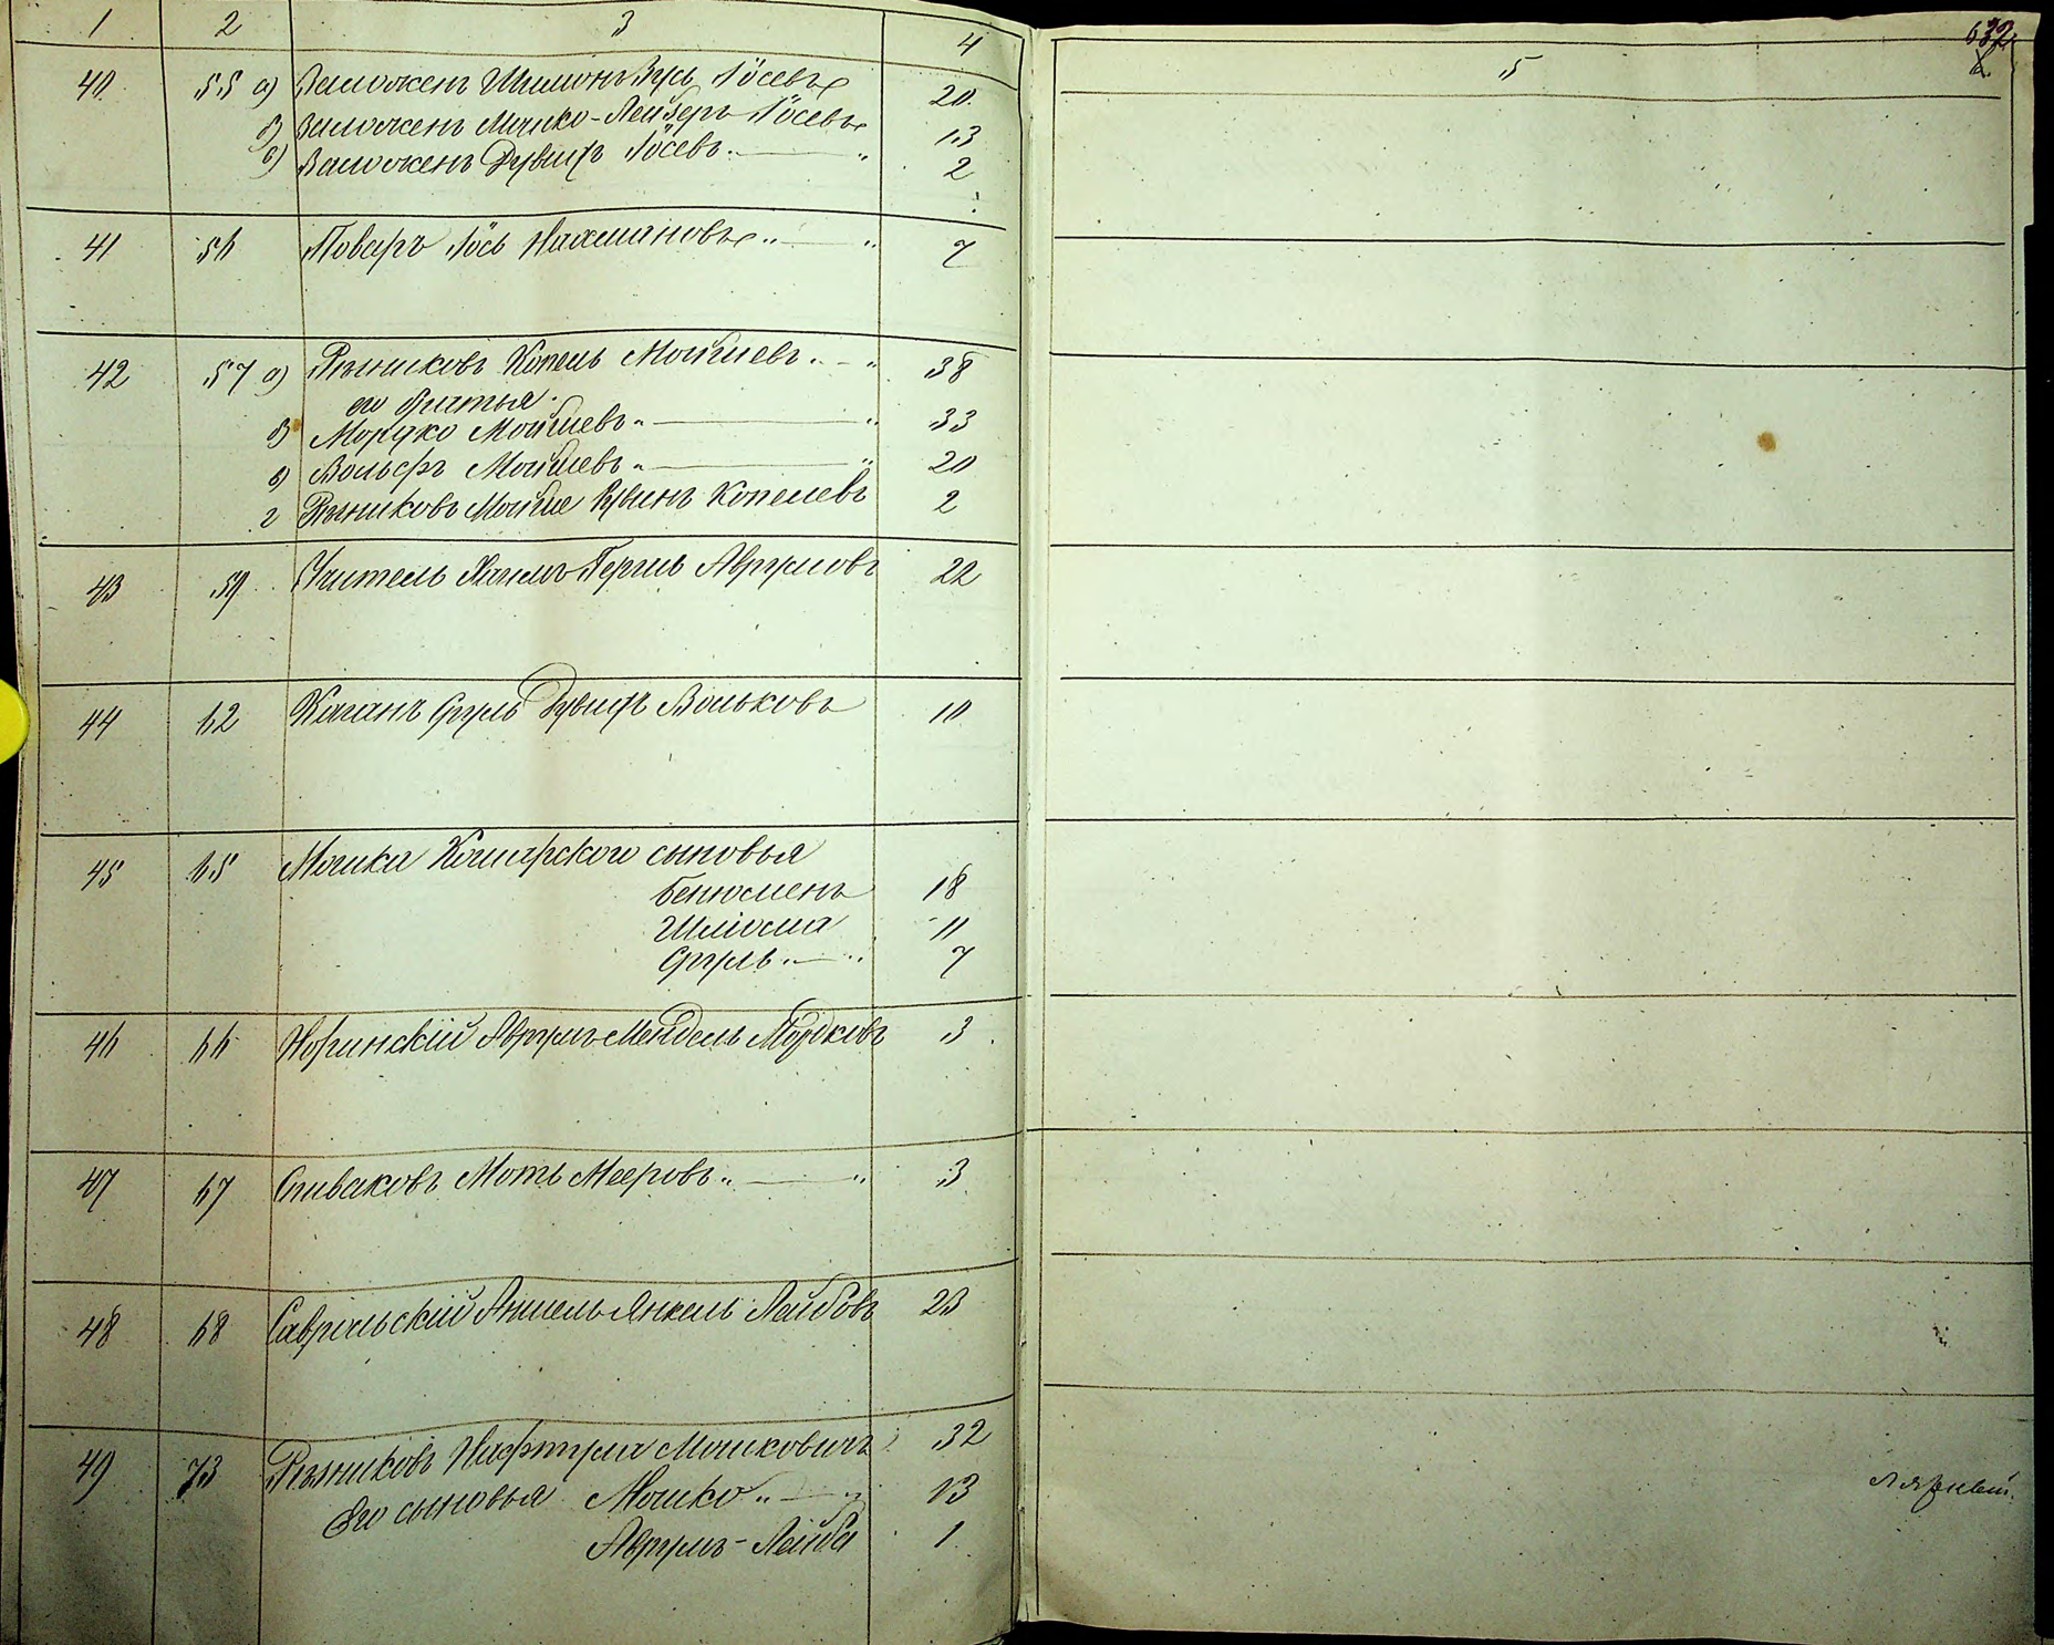 1 2 3 4
40 55 а) Заможенъ Шимонъ Зусь Іосевъ 20
б) Заможенъ Мошко-Лейзеръ Іосевъ 13
в) Заможенъ Дувидъ Іосевъ 2
41 56 Поваръ Іось Нахмановъ 7
42 57 а) Рѣзниковъ Копель Мойшевъ 38
его братья
б) Мордко Мойшевъ 33
в) Вольфъ Мойшевъ 20
г Рѣзниковъ Мойше Рувинъ Копелевъ 2
43 59 Учитель Хаимъ Гершъ Аврумовъ 22
44 62 Каганъ Сруль Дувидъ Вольковъ 10
45 65 Мошка Кошарскаго сыновья
Бенюменъ 18
Шлiома 11
Сруль 7
46 66 Норинскій Аврумъ-Мендель Мордковъ 3
47 67 Спиваковъ Моть Мееровъ 3
48 68 Савранскій Аншель-Янкель Лейбовъ 23
49 73 Рѣзниковъ Нафтула Мошковичъ 32
Его сыновья Мошко 13
Аврумъ-Лейба 1
632
5